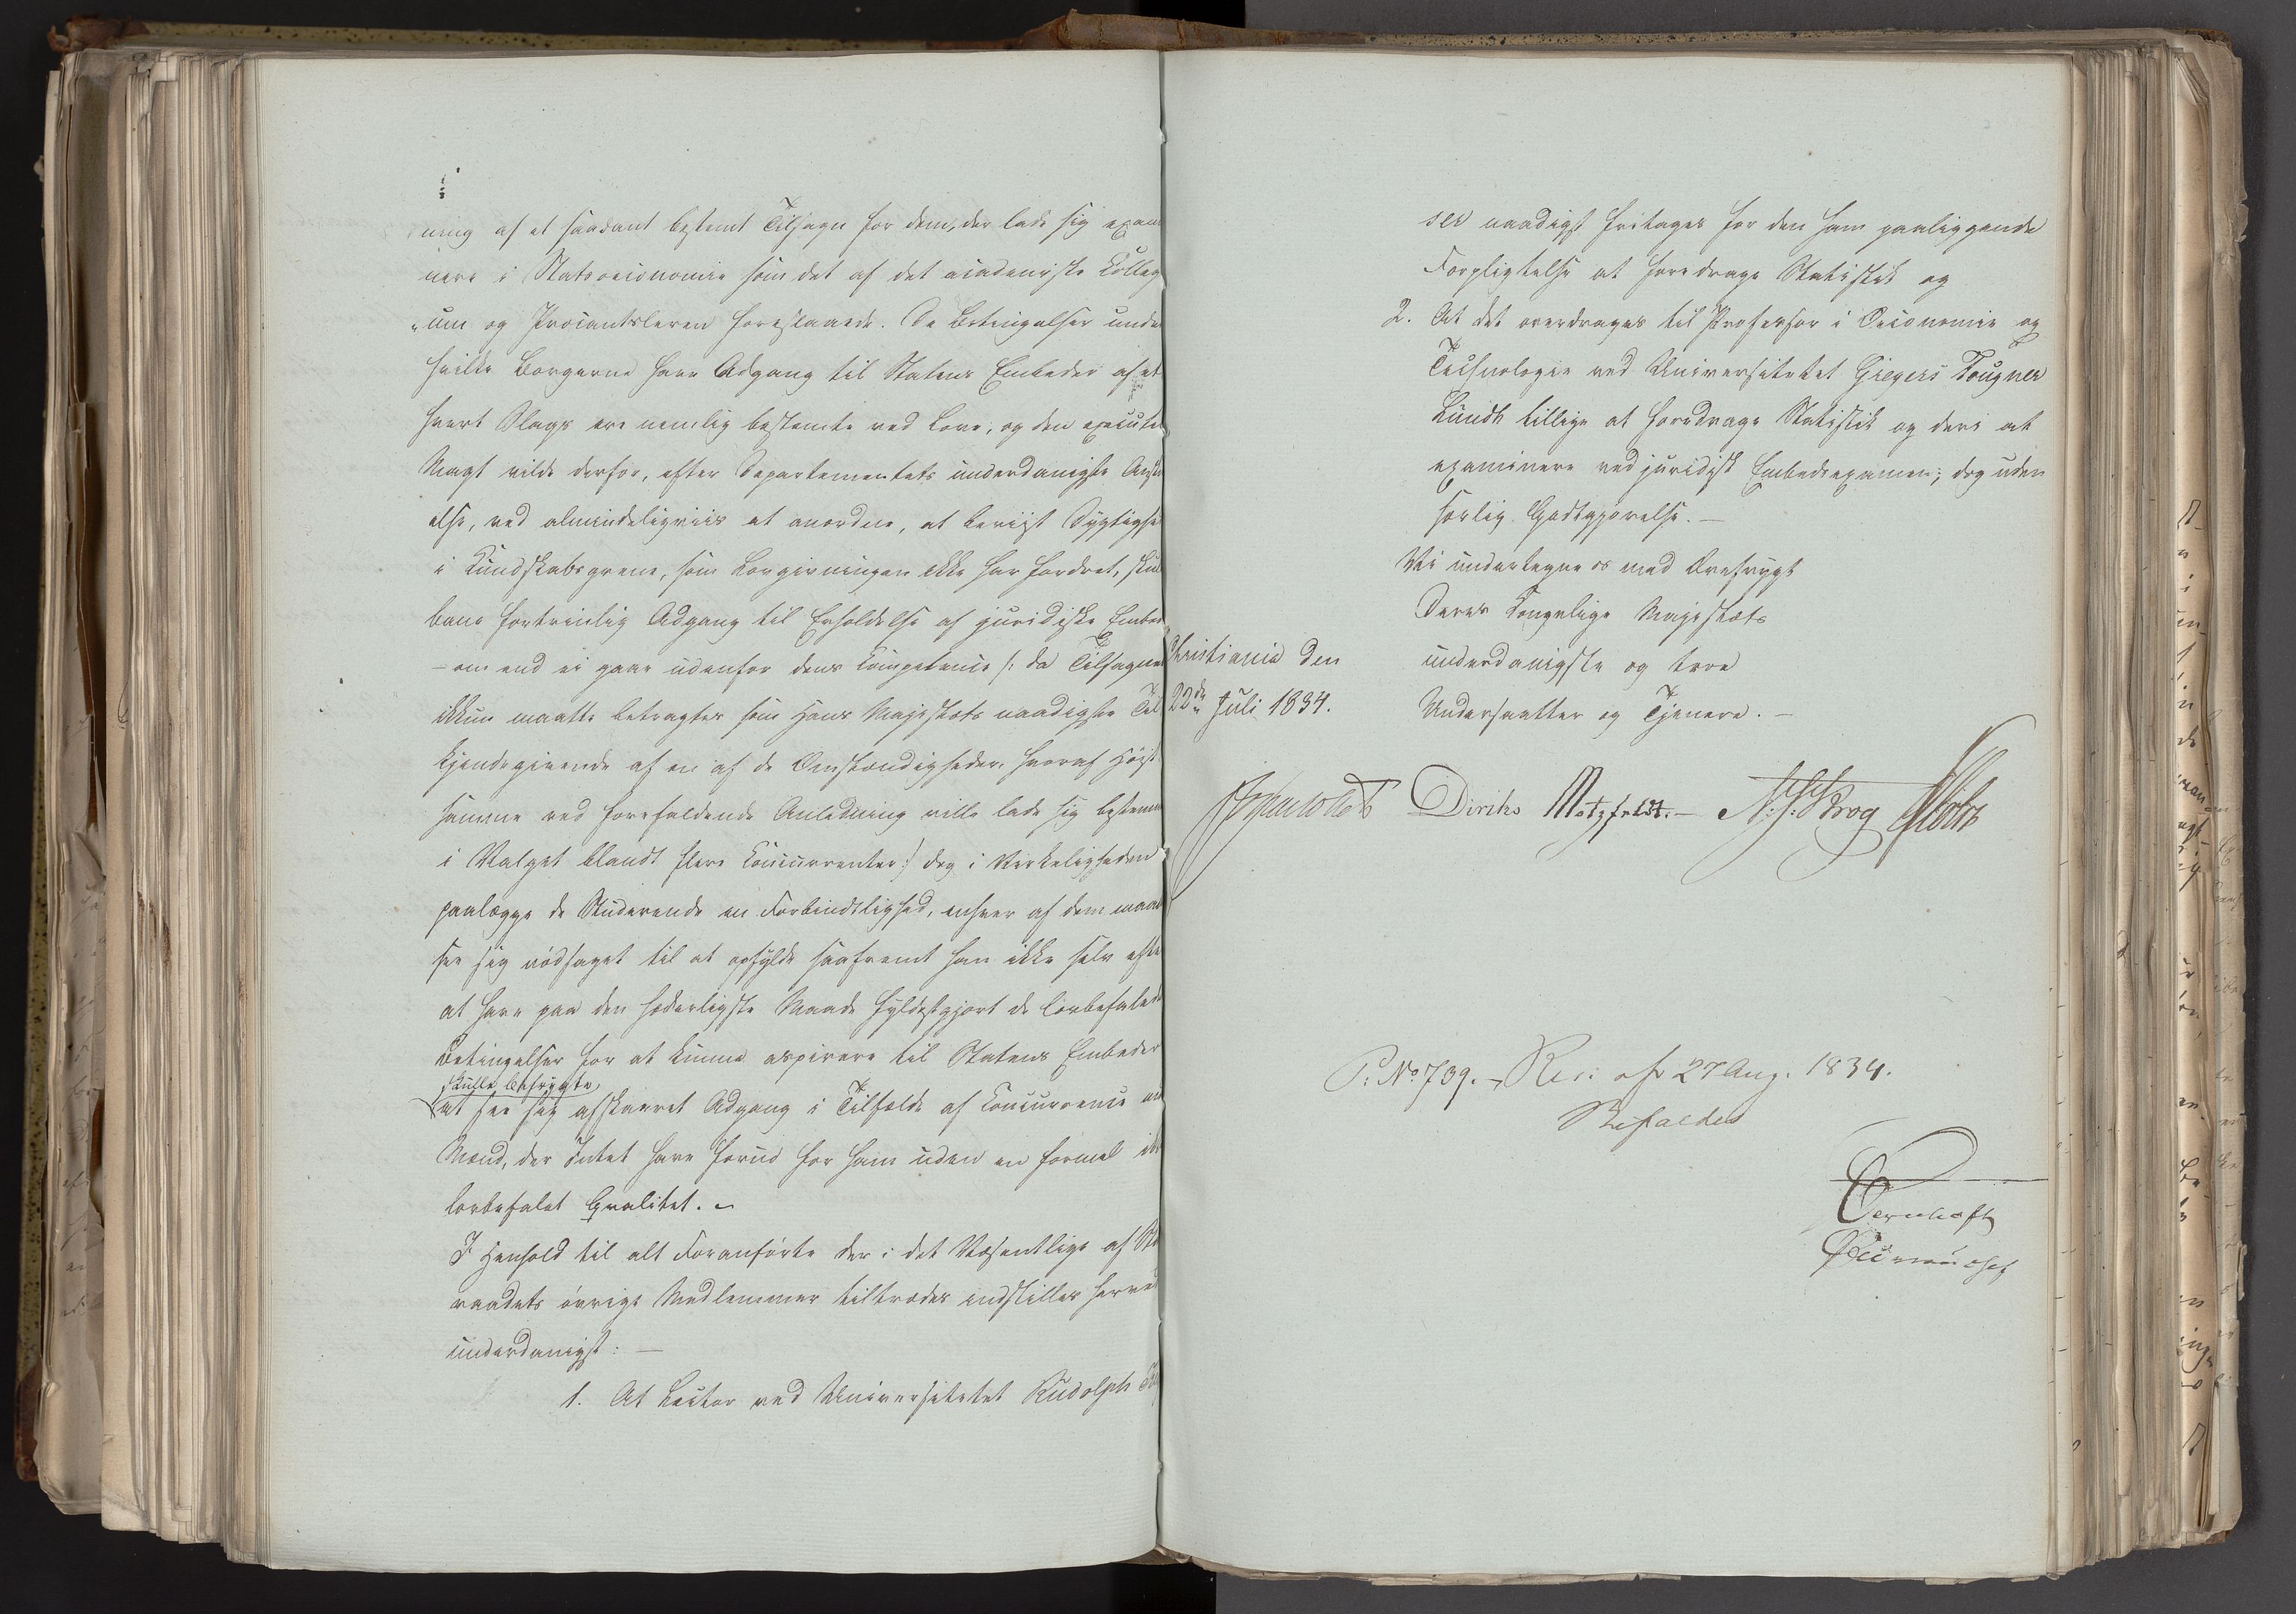 ning af et saadant bestemt Tilsagn for dem, der lade sig exami
nere i Statsoeconomie som det af det academiske Colleg
um og Procantsleren foreslaaede. De Betingelser under
hvilke Borgerne have Adgang til Statens Embeder af et
hvert Slags ere nemlig bestemte ved Love, og den executi
Magt vilde derfor, efter Departementets underdanigste Ansk
else, ved almindeligviis at anordne, at beviist Dygtighe
i Kundskabsgrene, som Lovgivningen ikke har fordret, skul
bane fortrinlig Adgang til Erholdelse af juridiske Embed
- om end ei gaae udenfor dens Competence /: da Tilsagne
ikkun maatte betragtes som Hans Majestæts naadigste Til
kjendegivende af en af de Omstændigheder, hvoraf Høist
samme ved forefaldende Anledning ville lade sig bestemme
i Valget blandt flere Concurrenter :/ dog i Virkeligheden
paalægge de Studerende en Forbindtlighed, enhver af dem maat
see sig nödsaget til at opfylde saafremt han ikke selv efte
at have paa den hæderligste Maade fyldestgjort de lovbefalede
Betingelser for at kunne aspirere til Statens Embeder
skulle befrygte
at see sig afskaaret Adgang i Tilfælde af Concurrence
Mænd, der Intet have forud for ham uden en formel ik
lovbefalet Qvalitet. -
I Henhold til alt Foranförte der i det Væsentlige af St
raadets övrige Medlemmer tiltrædes indstilles herve
underdanigst: -
1. At Lector ved Universitetet Rudolph
ser naadigst fritages for den ham paaliggende
Forpligtelse at foredrage Statistik og
2. At det overdrages til Professor i Oeconomie og
Technologie ved Universitetet Gregers Fougner
Lundh tillige at foredrage Statistik og deri at
examinere ved juridisk Embedsexamen; dog uden
særlig Godtgjörelse. -
Vi undertegne os med Ærefrygt
Deres Kongelige Majestæts
Christiania den underdanigste og troe
22de Juli 1834. Undersaatter og Tjenere. -
Diriks Motzfeldt. - N. J. Krog
P: No. 739. - Res: af 27 Aug. 1834.
Bifaldes